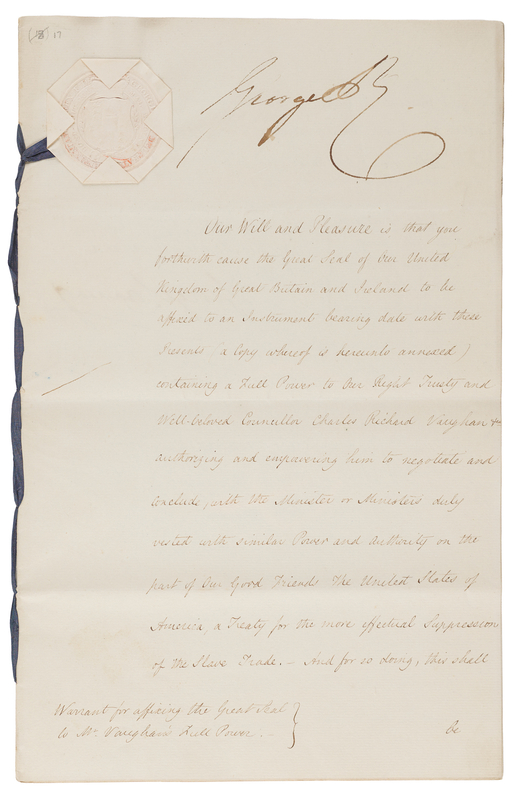 (18) 17
George R
Our Will and Pleasure is that you
forthwith cause the Great Seal of Our United
Kingdom of Great Britain and Ireland to be
affixed to an Instrument bearing date with these
Presents (a Copy whereof is hereunto annexed)
containing a Full Power to Our Right Trusty and
Well-beloved Councillor Charles Richard Vaughan &c
authorizing and empowering him to negotiate and
conclude, with the Minister or Ministers duly
vested with similar Power and authority on the
part of Our Good Friends The United States of
America, a Treaty for the more effectual Suppression
of the Slave Trade. – And for so doing, this shall
Warrant for affixing the Great Seal
to Mr. Vaughan's Full Power. –
be